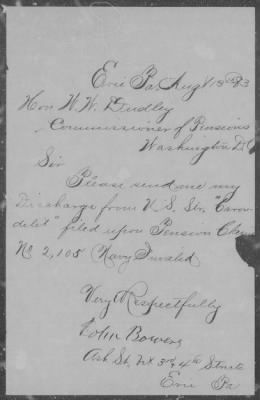 Erie Pa Aug 18th 83
Hon W. W. Dudley
Commissioner of Pensions
Washington D.C
Sir
Please send me my
Discharge from U. S. Str. "Caron-
delet" filed upon Pension Claim
No 2,105 Navy Invalid
Very Respectfully
John Bowers
Ash St, bet 3rd, 4th Streets
Erie Pa